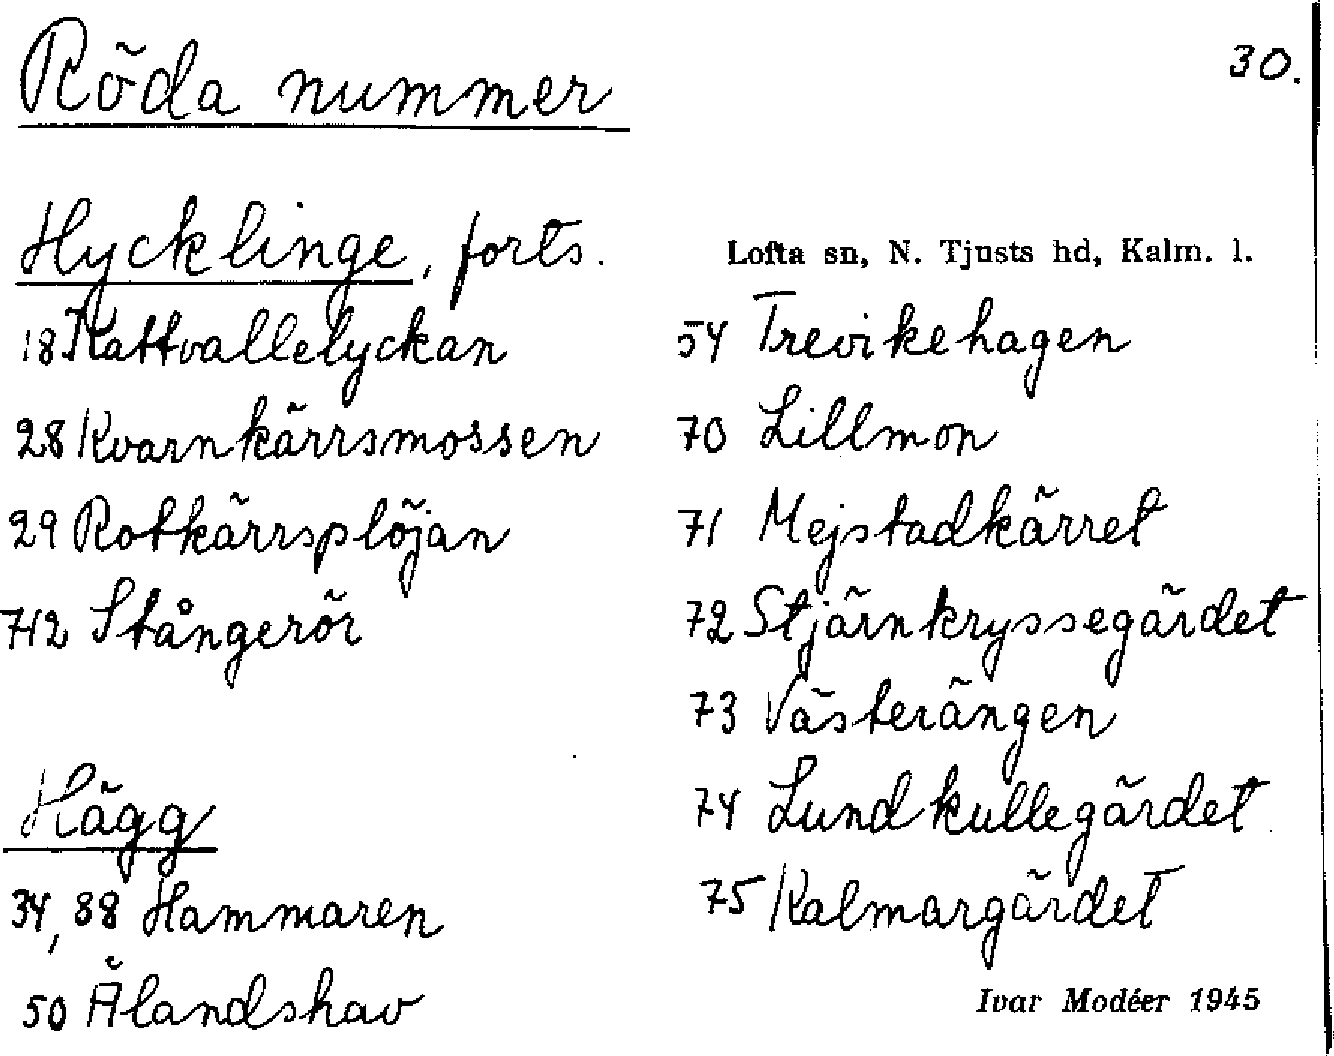 Röda nummer
30.
Hycklinge, forts.
18 Kattvallelyckan
28 Kvarnkärrsmossen
29 Rotkärrsplöjan
742 Stångerör
Hägg
34, 88 Hammaren
50 Älandshav
Lofta sn, N. Tjusts hd, Kalm. l.
54 Trevikehagen
70 Lillmon
71 Mejstadkärret
72 Stjärnkryssegärdet
73 Västerängen
74 Lundkullegärdet
75 Kalmargärdet
Ivar Modéer 1945